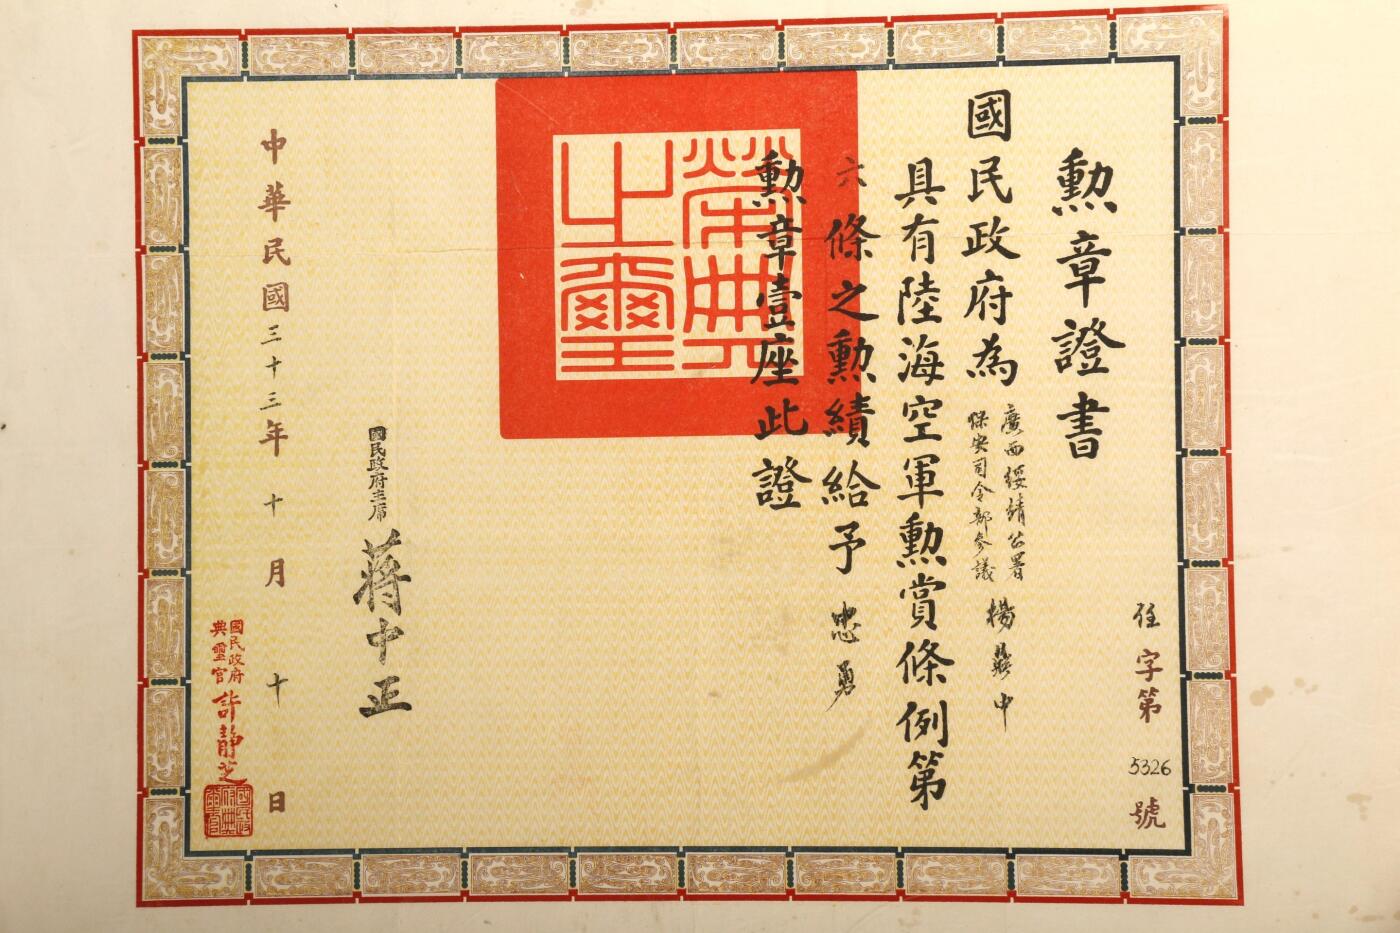 勲章證書
國民政府為
廣西綏靖公署
保安司令部參議
楊㠭中
具有陸海空軍勲賞條例第
六條之勲績給予忠勇
勲章壹座此證
榮典之璽
國民政府主席 蔣中正
中華民國三十三年十月十日
國民政府
典璽官
許靜芝
國民政府典璽官
字第5326號